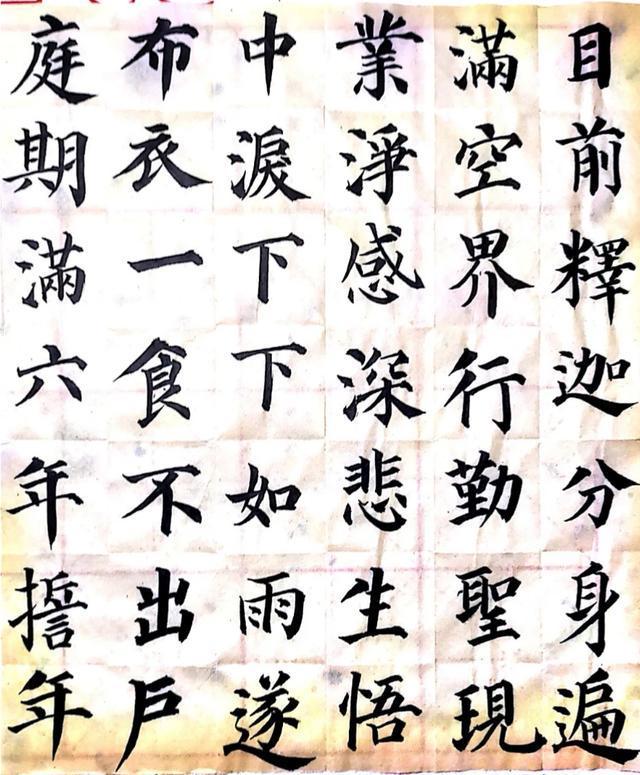 目前釋迦分身遍
滿空界行勤聖現
業淨感深悲生悟
中淚下下如雨遂
布衣一食不出戶
庭期滿六年誓年